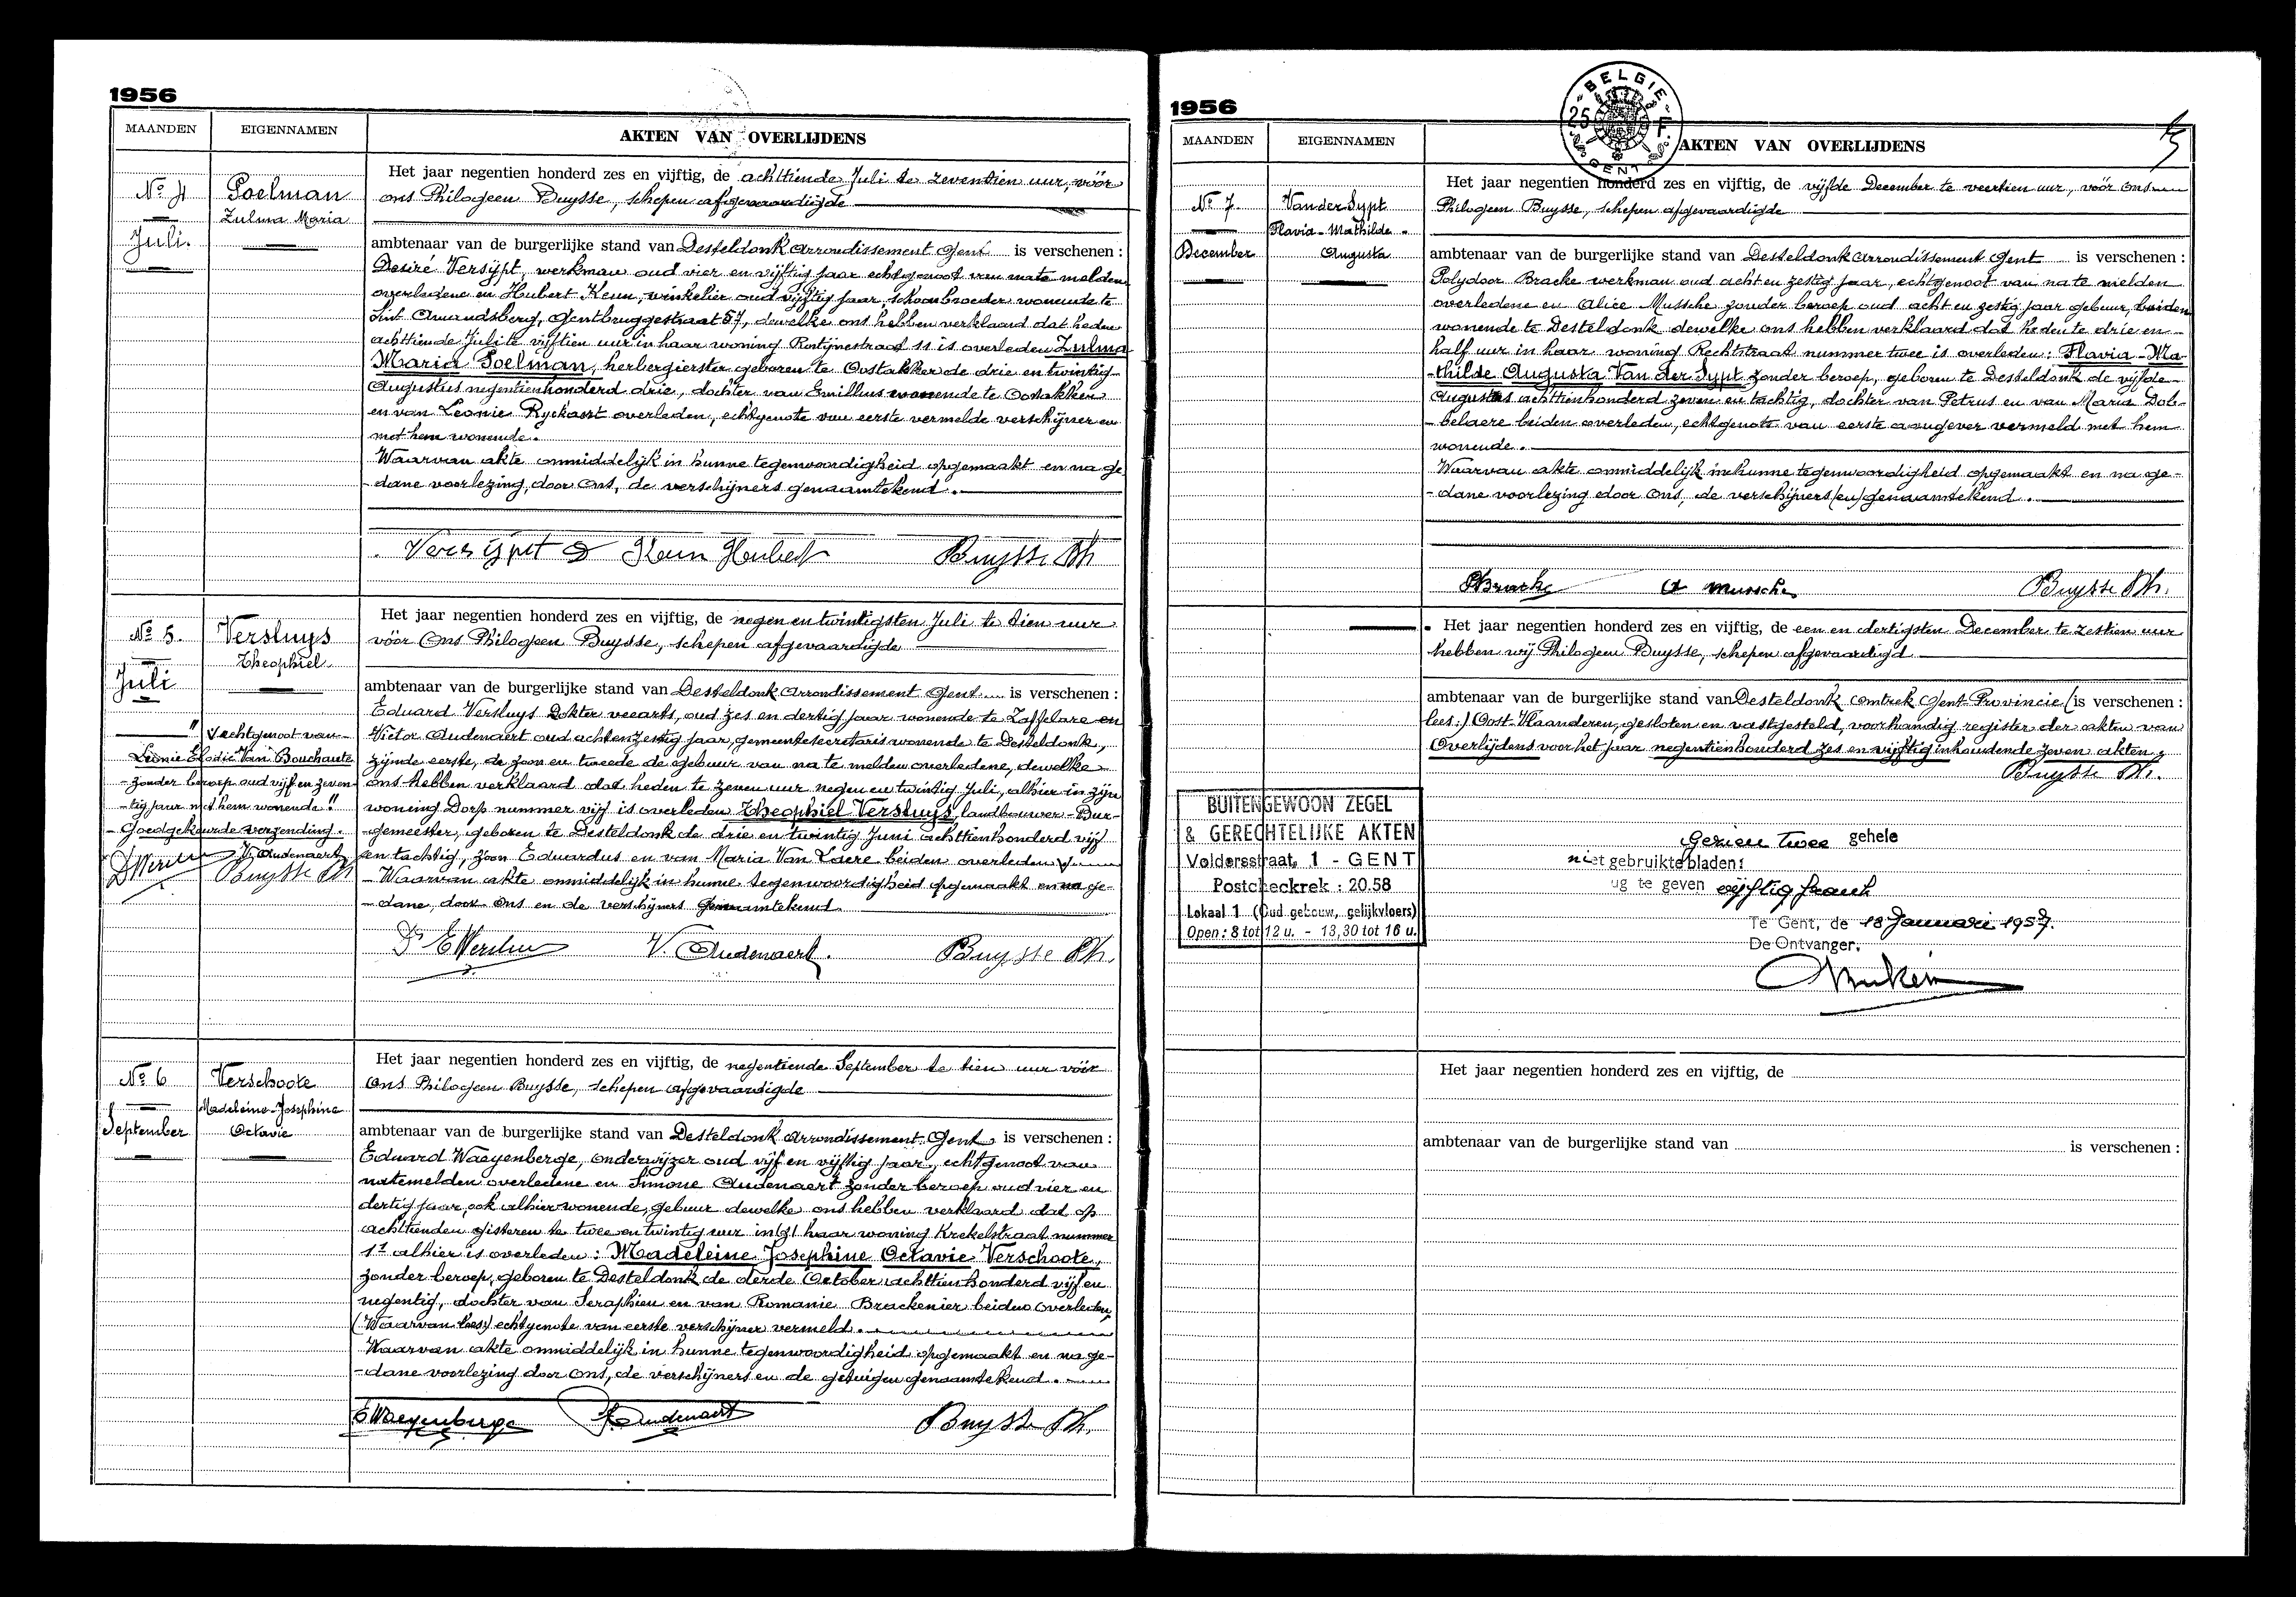 1956
MAANDEN EIGENNAMEN AKTEN VAN OVERLIJDENS
No 4
Juli.
Poelman
Zulma Maria
Het jaar negentien honderd zes en vijftig, de achttiende Juli te zeventien uur, vóór
ons Philogeen Buysse, schepen afgevaardigde
ambtenaar van de burgerlijke stand van Desteldonk Arrondissement Gent is verschenen :
Desiré Versijpt, werkman oud vier en vijftig jaar echtgenoot van nate melden
overledene en Hubert Keun, winkelier oud vijftig jaar, schoonbroeder wonende te
Sint Amandsberg, Gentbruggestraat 57, dewelke ons hebben verklaard dat heden
achttiende Juli te vijftien uur in haar woning Rostijnestraat 11 is overleden Zulma
Maria Poelman, herbergierster geboren te Oostakker de drie en twintig
Augustus negentienhonderd drie, dochter van Emillius wonende te Oostakker
en van Leonie Ryckaert overleden, echtgenote van eerste vermelde verschijner en
met hem wonende.
Waarvan akte onmiddelijk in hunne tegenwoordigheid opgemaakt en na ge
- dane voorlezing, door Ons, de verschijners genaamtekend.
Versijpt D Keun Hubert Buysse Ph
No 5.
Juli
Versluys
Theophiel
Het jaar negentien honderd zes en vijftig, de negen en twintigsten Juli te tien uur
vóór Ons Philogeen Buysse, schepen afgevaardigde
ambtenaar van de burgerlijke stand van Desteldonk Arrondissement Gent is verschenen :
Eduard Versluys Dokter veearts, oud zes en dertig jaar wonende te Zaffelare en
Victor Audenaert oud achtenzestig jaar, gemeentesecretaris wonende te Desteldonk,
zijnde eerste, de zoon en tweede de gebuur van na te melden overledene, dewelke
ons hebben verklaard dat heden te zeven uur negen en twintig Juli, alhier in zijn
woning Dorp nummer vijf is overleden Theophiel Versluys, landbouwer - Bur-
-gemeester, geboren te Desteldonk de drie en twintig Juni achttienhonderd vijf
en tachtig, zoon Eduardus en van Maria Van Laere beiden overleden √
- Waarvan akte onmiddelijk in hunne tegenwoordigheid opgemaakt en na ge-
- dane, door Ons en de verschijners genaamtekend.
" √ echtgenoot van
Leonie Elodie Van Bouchaute
- zonder beroep oud vijf en zeven
- tig jaar met hem wonende "
- Goedgekeurde verzending.
V. Audenaert
Buysse Ph
V. Audenaert. Buysse Ph.
No 6
September
Verschoote
Madeleine-Josephine
Octavie
Het jaar negentien honderd zes en vijftig, de negentiende September te tien uur vóór
Ons Philogeen Buysse, schepen afgevaardigde
ambtenaar van de burgerlijke stand van Desteldonk Arrondissement Gent is verschenen :
Eduard Waeyenberge, onderwijzer oud vijf en vijftig jaar, echtgenoot van
natemelden overledene en Simone Audenaert zonder beroep oud vier en
dertig jaar, ook alhier wonende, gebuur dewelke ons hebben verklaard dat op
achttienden gisteren te twee en twintig uur in haar woning Krekelstraat nummer
11 alhier is overleden : Madeleine Josephine Octavie Verschoote,
zonder beroep, geboren te Desteldonk de derde October achttienhonderd vijf en
negentig, dochter van Seraphien en van Romanie Brackenier beiden overleden,
(Waarvan lees:) echtgenote van eerste verschijner vermeld.
Waarvan akte onmiddelijk in hunne tegenwoordigheid opgemaakt en na ge-
- dane voorlezing door Ons, de verschijners en de getuigen genaamtekend.
E Waeyenberge S. Audenaert Buysse Ph.
1956
BELGIE
25 F
GENT
MAANDEN EIGENNAMEN AKTEN VAN OVERLIJDENS
No 7.
December
Van der Sypt
Flavia - Mathilde -
Augusta
Het jaar negentien honderd zes en vijftig, de vijfde December te veertien uur, vóór ons
Philogeen Buysse, schepen afgevaardigde
ambtenaar van de burgerlijke stand van Desteldonk Arrondissement Gent is verschenen :
Polydoor Bracke werkman oud acht en zestig jaar, echtgenoot van na te melden
overledene en Alice Mussche zonder beroep oud acht en zestig jaar gebuur, beiden
wonende te Desteldonk dewelke ons hebben verklaard dat heden te drie en
half uur in haar woning Rechtstraat nummer twee is overleden : Flavia - Ma-
-thilde Augusta Van der Sypt zonder beroep, geboren te Desteldonk de vijfde
Augustus achttienhonderd zeven en tachtig, dochter van Petrus en van Maria Dob-
- belaere beiden overleden, echtgenote van eerste aangever vermeld met hem
wonende.
Waarvan akte onmiddelijk in hunne tegenwoordigheid opgemaakt en na ge-
- dane voorlezing door Ons, de verschijners (en) genaamtekend.
P Bracke A Mussche Buysse Ph.
Het jaar negentien honderd zes en vijftig, de een en dertigsten December te zestien uur
hebben wij Philogeen Buysse, schepen afgevaardigd
ambtenaar van de burgerlijke stand van Desteldonk omtrek Gent Provincie (is verschenen :
lees:) Oost-Vlaanderen, gesloten en vastgesteld, voorhandig register der akten van
Overlijdens voor het jaar negentienhonderd zes en vijftig inhoudende zeven akten.
Buysse Ph.
BUITENGEWOON ZEGEL
& GERECHTELIJKE AKTEN
Voldersstraat, 1 - GENT
Postcheckrek : 20.58
Lokaal 1 (Oud gebouw, gelijkvloers)
Open : 8 tot 12 u. - 13,30 tot 16 u.
Gezien twee gehele
niet gebruikte bladen
ug te geven vijftig frank
Te Gent, de 18 Januari 1957.
De Ontvanger,
Het jaar negentien honderd zes en vijftig, de
ambtenaar van de burgerlijke stand van is verschenen :